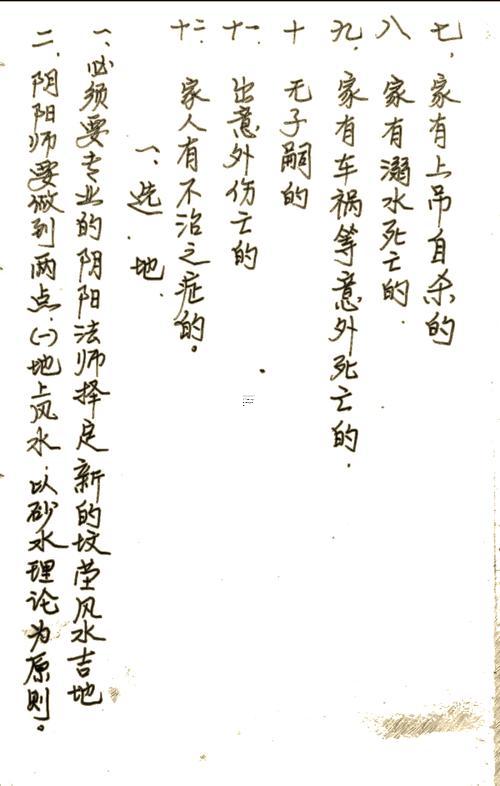 七、家有上吊自杀的
八 家有溺水死亡的.
九、家有车祸等意外死亡的.
十 无子嗣的
十一、出意外伤亡的
十二、家人有不治之症的。
一、选.地.
一、必须要专业的阴阳法师择定新的坟茔风水吉地
二、阴阳师要做到两点.(一)地上风水.以砂水理论为原则。